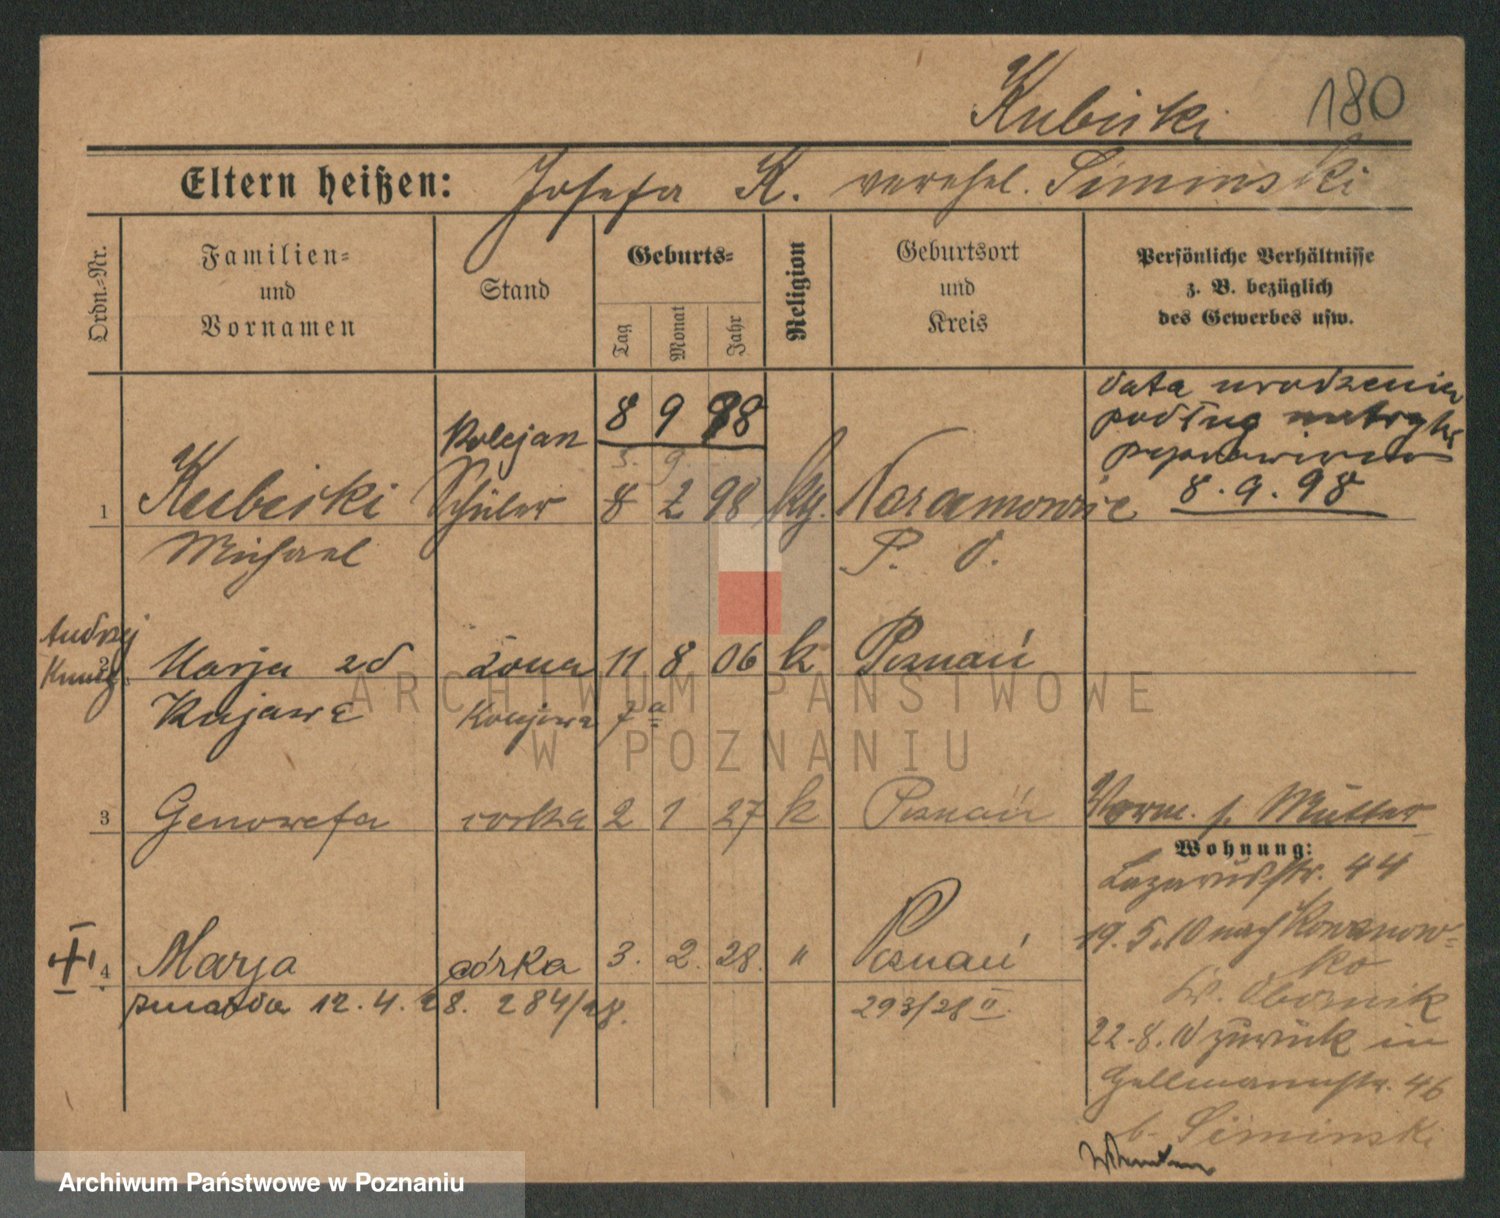 Kubiski 180
Eltern heißen: Josefa K. verehel. Siminski
Ordn.-Nr.
Familien-
und
Vornamen
Stand
Geburts-
Tag
Monat
Jahr
Religion
Geburtsort
und
Kreis
Persönliche Verhältnisse
z. B. bezüglich
des Gewerbes usw.
data urodzenia
podług metryki
8.9.98
8 9 98
Kolejarz
1 Kubiski Schüler 8 2 98 Naramowice
Michael P. O.
Andrzej
2 Marja zd żona 11 8 06 k Poznań
Kujawa
3 Genowefa córka 2 1 27 k Poznań
Vorm. s. Mutter
Wohnung:
Lazarusstr. 44
19.5.10 nach Kowanow-
ko
Kr. Obornik
22.8.10 zurück in
46
b. Siminski
4 Marja córka 3. 2. 28. " Poznań
zmarła 12.4.28. 284/28. 293/28 II
ARCHIWUM PAŃSTWOWE
W POZNANIU
Archiwum Państwowe w Poznaniu